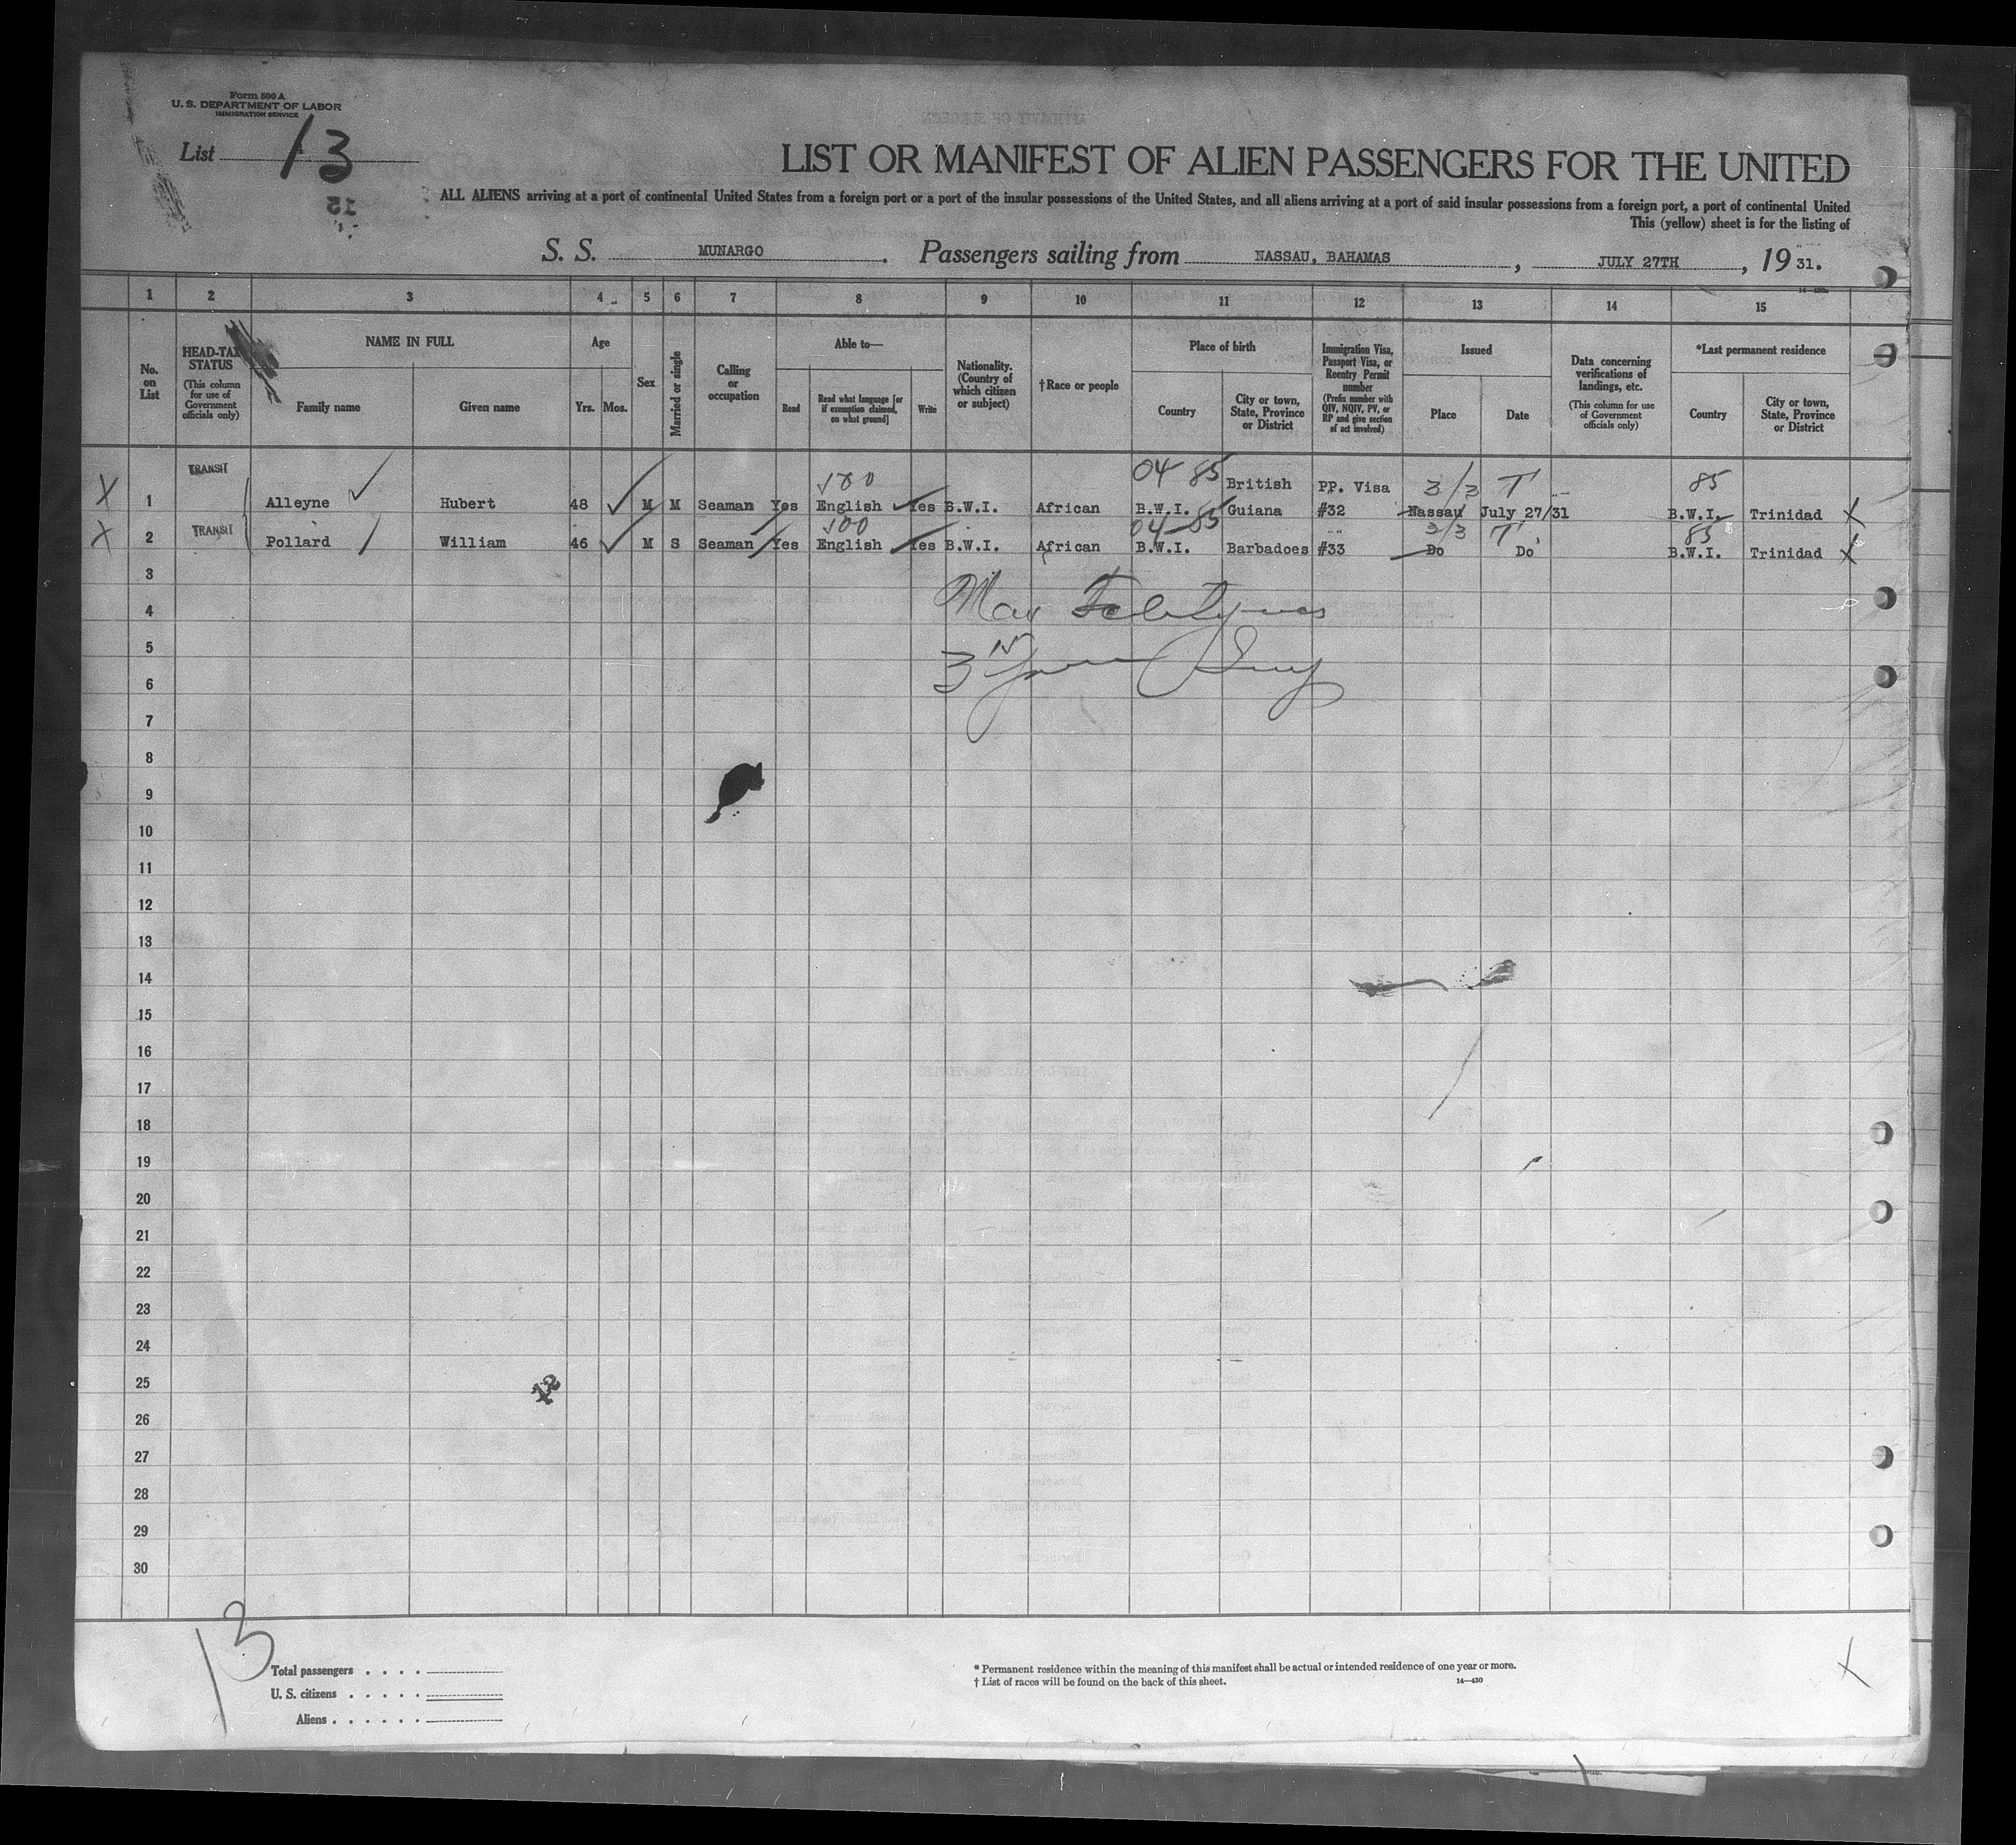 Form 500 A
U. S. DEPARTMENT OF LABOR
IMMIGRATION SERVICE
List 13
LIST OR MANIFEST OF ALIEN PASSENGERS FOR THE UNITED
ALL ALIENS arriving at a port of continental United States from a foreign port or a port of the insular possessions of the United States, and all aliens arriving at a port of said insular possessions from a foreign port, a port of continental United
This (yellow) sheet is for the listing of
S. S. MUNARGO. Passengers sailing from NASSAU, BAHAMAS, JULY 27TH, 1931.
1 2 3 4 5 6 7 8 9 10 11 12 13 14 15
No. on List
HEAD-TAX STATUS
(This column for use of Government officials only)
NAME IN FULL
Family name
Given name
Age
Yrs. Mos.
Sex
Married or single
Calling or occupation
Able to—
Read
Read what language [or if exemption claimed, on what ground]
Write
Nationality. (Country of which citizen or subject)
†Race or people
Place of birth
Country
City or town, State, Province or District
Immigration Visa, Passport Visa, or Reentry Permit number
(Prefix number with QIV, NQIV, PV, or RP and give section of act involved)
Issued
Place
Date
Data concerning verifications of landings, etc.
(This column for use of Government officials only)
*Last permanent residence
Country
City or town, State, Province or District
TRANSIT 04 85 British PP. Visa 3/3 T 85
X 1 Alleyne Hubert 48 M M Seaman Yes English Yes B.W.I. African B.W.I. Guiana #32 Nassau July 27/31 B.W.I. Trinidad X
TRANSIT 100 04-85 3/3 T 85
X 2 Pollard William 46 M S Seaman Yes English Yes B.W.I. African B.W.I. Barbadoes #33 Do Do B.W.I. Trinidad X
3
4
5
6
7
8
9
10
11
12
13
14
15
16
17
18
19
20
21
22
23
24
25
26
27
28
29
30
12
13
Total passengers . . . .
U. S. citizens . . . . .
Aliens . . . . . .
* Permanent residence within the meaning of this manifest shall be actual or intended residence of one year or more.
† List of races will be found on the back of this sheet.
14—430
X